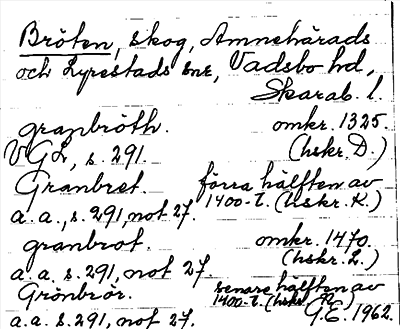 Bröten, skog, Amnehärads
och Lyrestads snr, Vadsbo hd,
Skarab. l.
granbröth. omkr. 1325.
VGL, s. 291. (hskr. D.)
Granbret. förra hälften av
a.a., s. 291, not 27. 1400-t. (hskr. K.)
granbrot. omkr. 1470.
a.a. s. 291, not 27. (hskr. L.)
Grönbrör. senare hälften av
a.a. s. 291, not 27. 1400-t. (hskr. R.)
G.E. 1962.